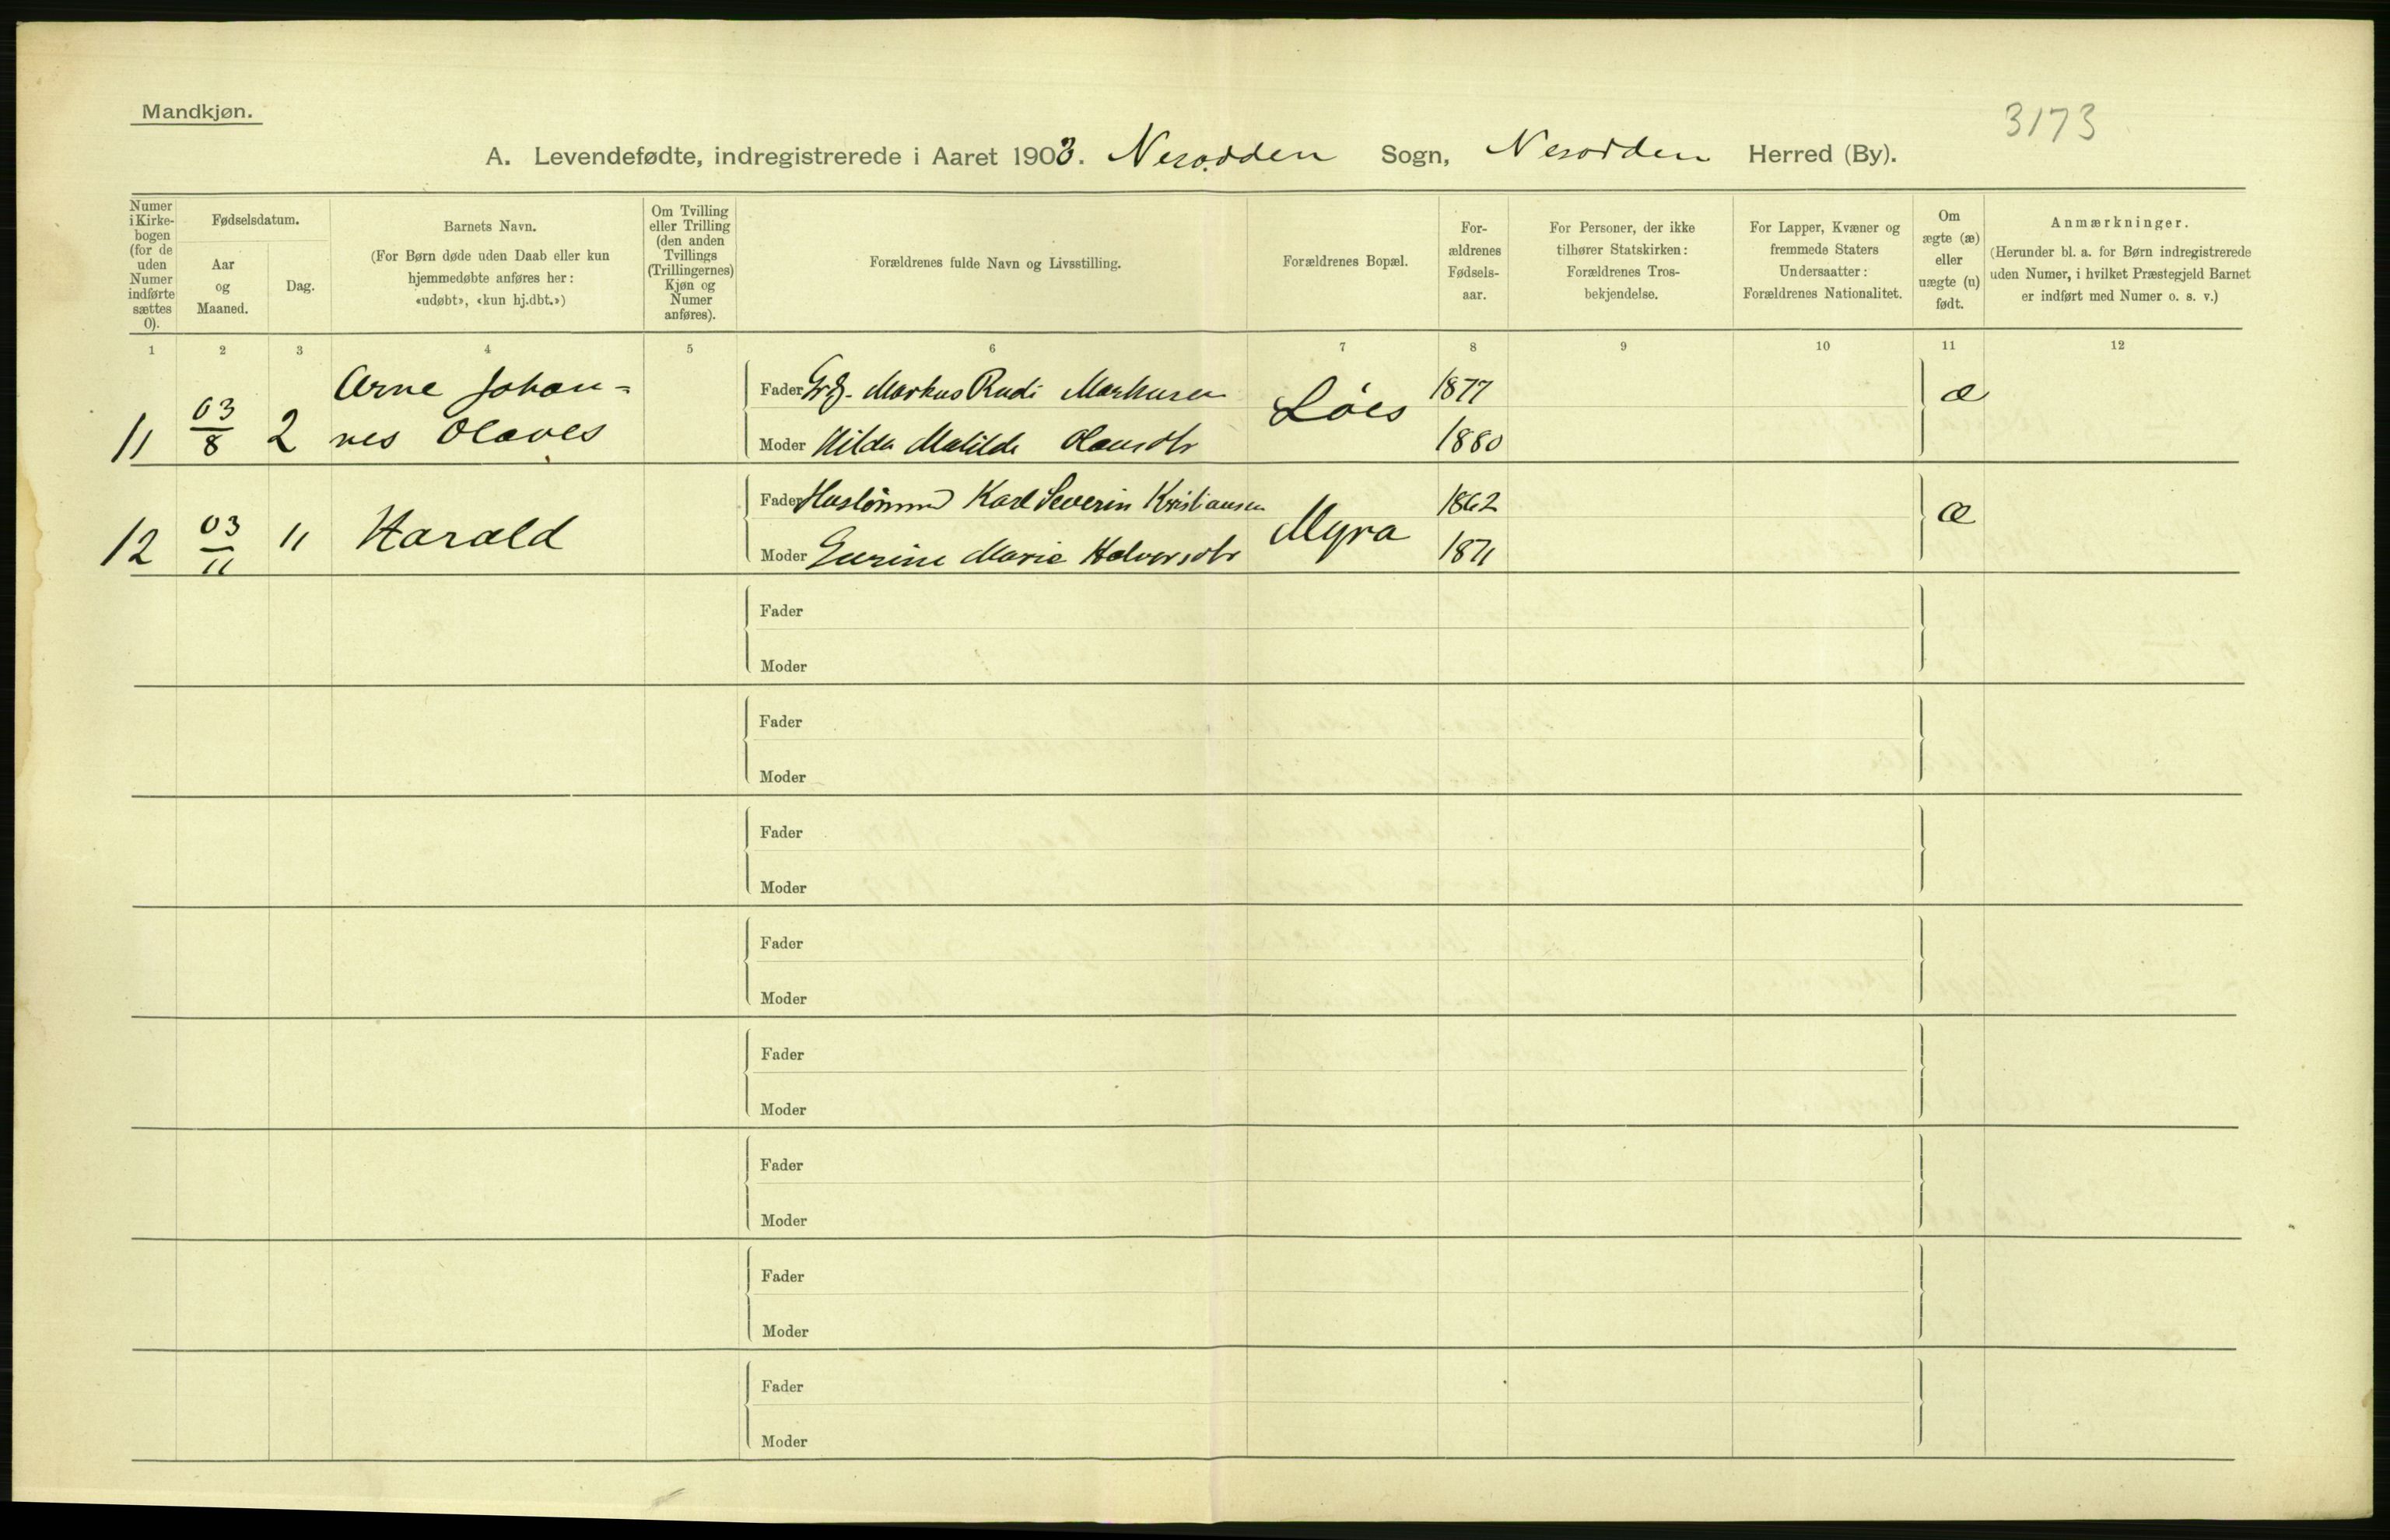 Mandkjøn.
3173
A. Levendefødte, indregistrerede i Aaret 1903. Nesodden Sogn, Nesodden Herred (By).
Numer i Kirke- bogen (for de uden Numer indførte sættes 0).
Fødselsdatum.
Aar og Maaned.
Dag.
Barnets Navn.
(For Børn døde uden Daab eller kun
hjemmedøbte anføres her:
«udøbt», «kun hj.dbt.»)
Om Tvilling eller Trilling (den anden Tvillings (Trillingernes) Kjøn og Numer anføres).
Forældrenes fulde Navn og Livsstilling.
Forældrenes Bopæl.
For- ældrenes Fødsels- aar.
For Personer, der ikke
tilhører Statskirken:
Forældrenes Tros-
bekjendelse.
For Lapper, Kvæner og
fremmede Staters
Undersaatter:
Forældrenes Nationalitet.
Om ægte (æ) eller uægte (u) født.
Anmærkninger.
(Herunder bl. a. for Børn indregistrerede
uden Numer, i hvilket Præstegjeld Barnet
er indført med Numer o. s. v.)
1 2 3 4 5 6 7 8 9 10 11 12
11 03/8 2 Arne Johan=
nes Olaves
Fader Markus Rudi Markusen 1877
Moder Hilda Matilde Olausdtr 1880
Løes æ
12 03/11 11 Harald
Fader Huslejmmd Karl Severin Kristiansen 1862
Moder Gurine Marie Halvorsdtr 1871
Myra æ
Fader
Moder
Fader
Moder
Fader
Moder
Fader
Moder
Fader
Moder
Fader
Moder
Fader
Moder
Fader
Moder